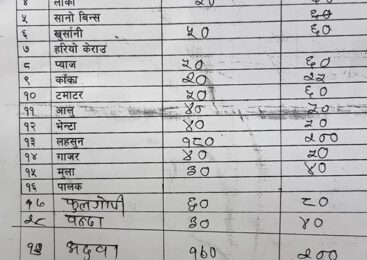 ४ लौका २० ६०
५ सानो बिन्स ६०
६ खुर्सानी ५० ६०
७ हरियो केराउ
८ प्याज ५० ६०
९ काँक्रा २० २५
१० टमाटर ५० ६०
११ आलु ४० ५०
१२ भेन्टा ४० ५०
१३ लहसुन १८० २००
१४ गाजर ४० ५०
१५ मुला ३० ४०
१६ पालक
१७ फूलगोपी ६० ८०
१८ वन्दा ३० ४०
१९ अदुवा १६० २००